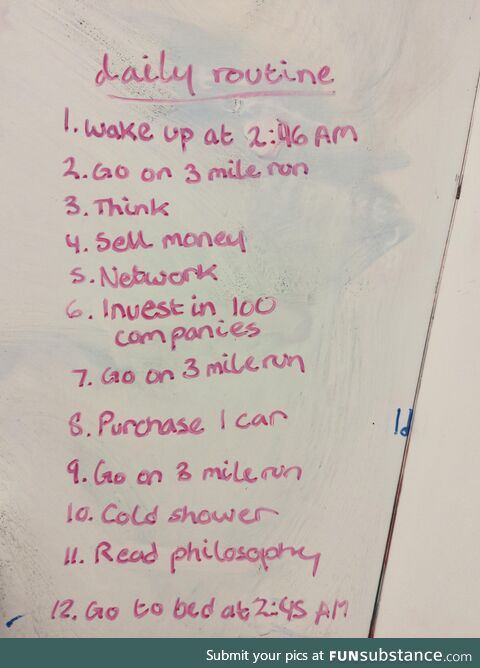 daily routine
1. Wake up at 2:46 AM
2. Go on 3 mile run
3. Think
4. Sell money
5. Network
6. Invest in 100
companies
7. Go on 3 mile run
8. Purchase 1 car
9. Go on 3 mile run
10. Cold shower
11. Read philosophy
12. Go to bed at 2:45 AM
Submit your pics at FUNsubstance.com